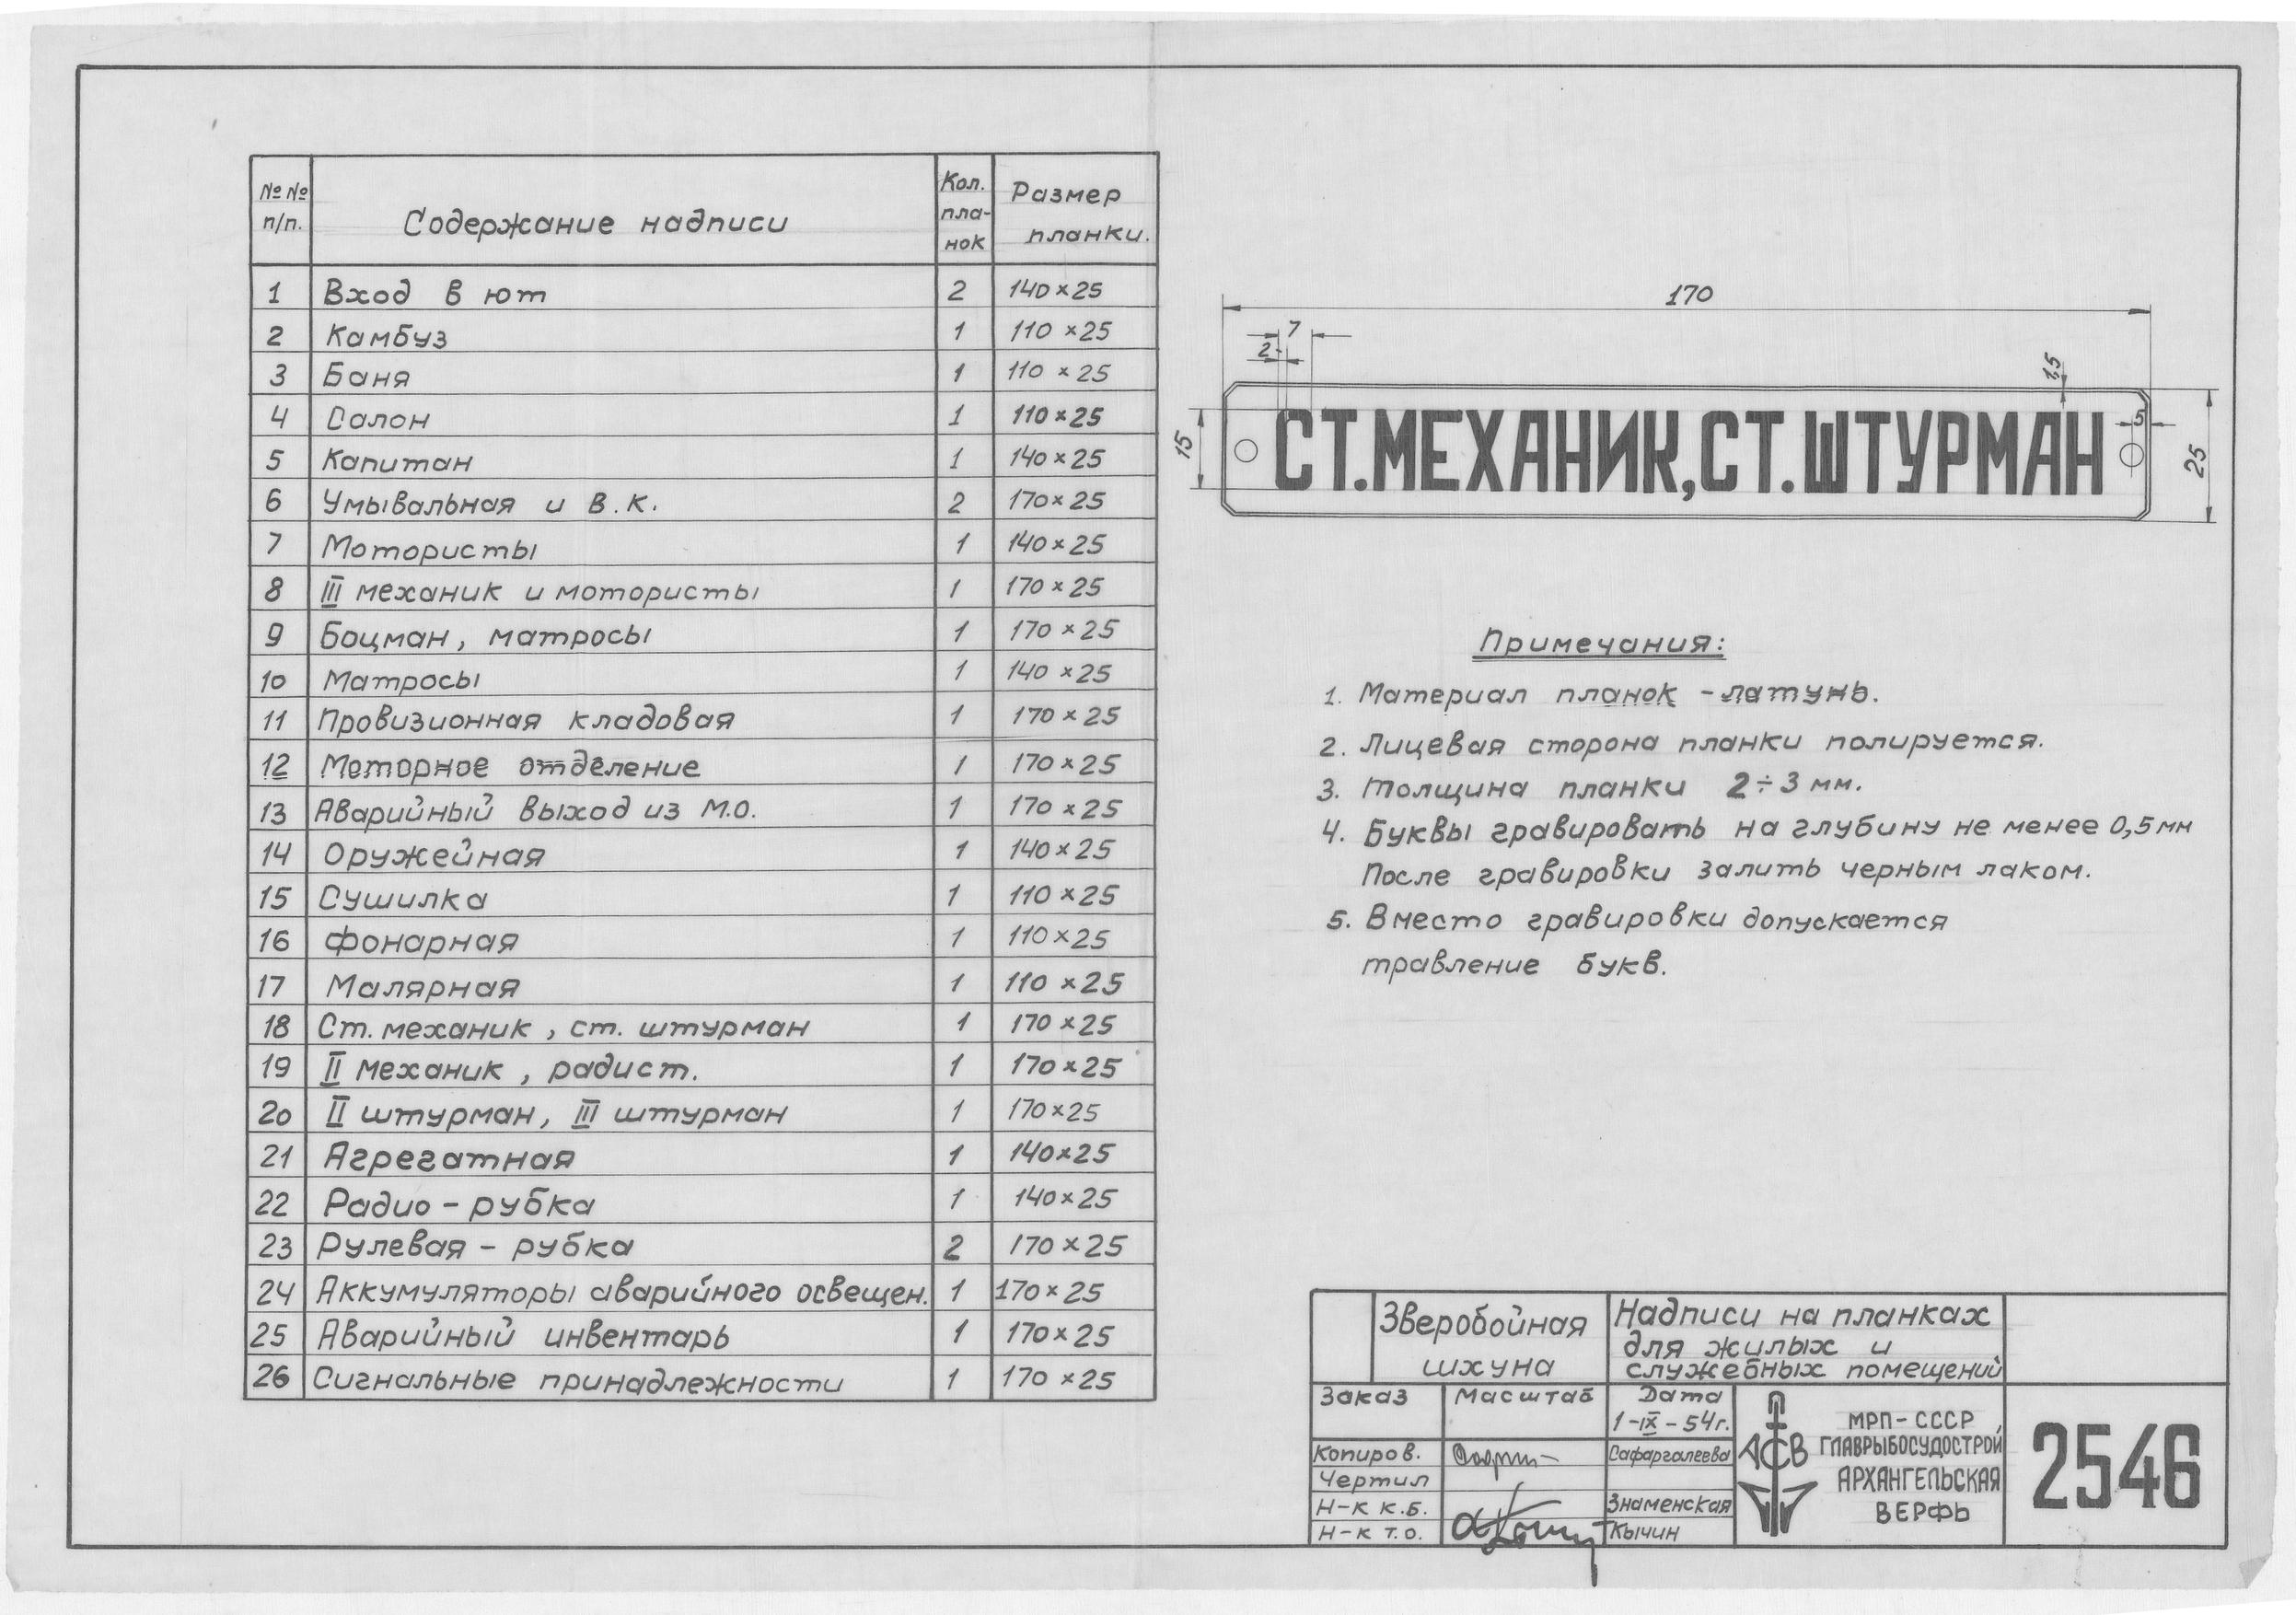 № № п/п. Содержание надписи Кол. пла- нок Размер планки.
1 Вход в ют 2 140×25
2 Камбуз 1 110×25
3 Баня 1 110×25
4 Салон 1 110×25
5 Капитан 1 140×25
6 Умывальная и в.к. 2 170×25
7 Мотористы 1 140×25
8 III механик и мотористы 1 170×25
9 Боцман, матросы 1 170×25
10 Матросы 1 140×25
11 Провизионная кладовая 1 170×25
12 Моторное отделение 1 170×25
13 Аварийный выход из М.О. 1 170×25
14 Оружейная 1 140×25
15 Сушилка 1 110×25
16 Фонарная 1 110×25
17 Малярная 1 110×25
18 Ст. механик, ст. штурман 1 170×25
19 II механик, радист. 1 170×25
20 II штурман, III штурман 1 170×25
21 Агрегатная 1 140×25
22 Радио-рубка 1 140×25
23 Рулевая-рубка 2 170×25
24 Аккумуляторы аварийного освещен. 1 170×25
25 Аварийный инвентарь 1 170×25
26 Сигнальные принадлежности 1 170×25
170
7
2
1,5
15
СТ.МЕХАНИК,СТ.ШТУРМАН
5
25
Примечания:
1. Материал планок - латунь.
2. Лицевая сторона планки полируется.
3. Толщина планки 2÷3 мм.
4. Буквы гравировать на глубину не менее 0,5 мм
После гравировки залить черным лаком.
5. Вместо гравировки допускается
травление букв.
Зверобойная
шхуна
Надписи на планках
для жилых и
служебных помещений
Заказ Масштаб Дата
1-IX-54г.
Копиров. Сафаргалеева
Чертил
Н-к К.Б. Знаменская
Н-к Т.О. Кычин
АСВ
МРП-СССР
ГЛАВРЫБОСУДОСТРОЙ
АРХАНГЕЛЬСКАЯ
ВЕРФЬ
2546